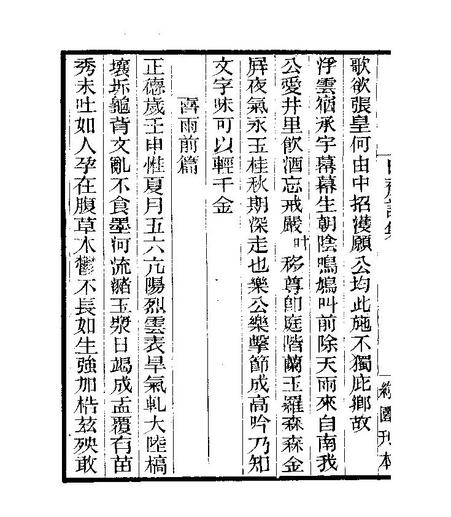 白齋詩集
約園刊本
歌欲張皇何由中招濩願公均此施不獨庇鄉故
浮雲宿承宇幕幕生朝陰鳴鳩叫前除天雨來自南我
公愛井里飲酒忘戒嚴叶移尊卽庭階蘭玉羅森森金
屛夜氣永玉桂秋期深走也樂公樂擊節成高吟乃知
文字味可以輕千金
喜雨前篇
正德歲壬申惟夏月五六亢陽烈雲表旱氣軋大陸槁
壤坼龜背文亂不食墨河流瀦玉漿日竭成盂覆有苗
秀未吐如人孕在腹草木鬱不長如生強加梏茲殃敢